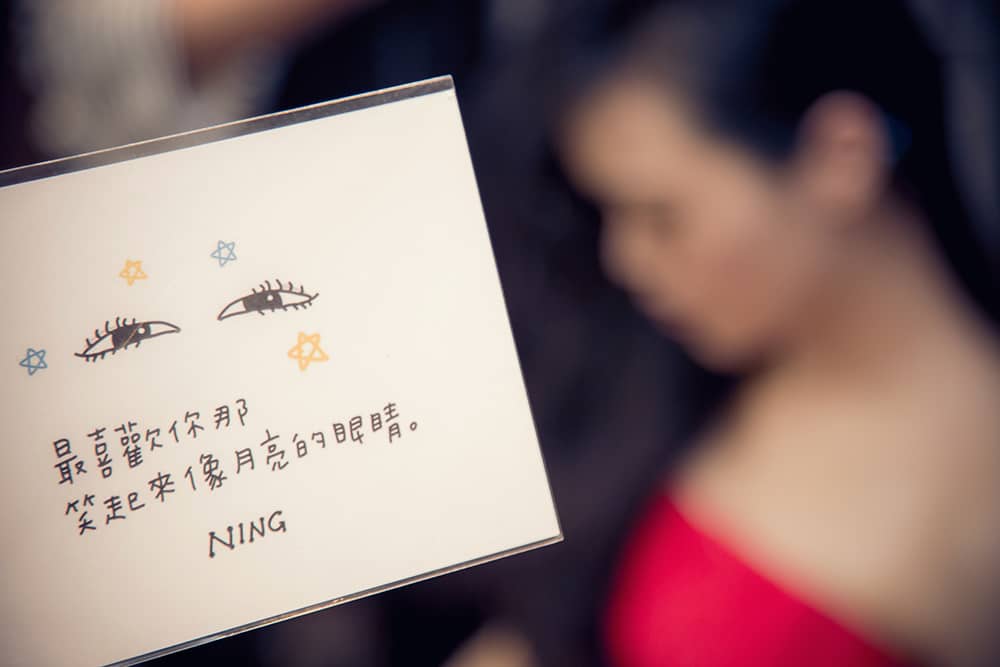 最喜歡你那
笑起來像月亮的眼睛。
NING